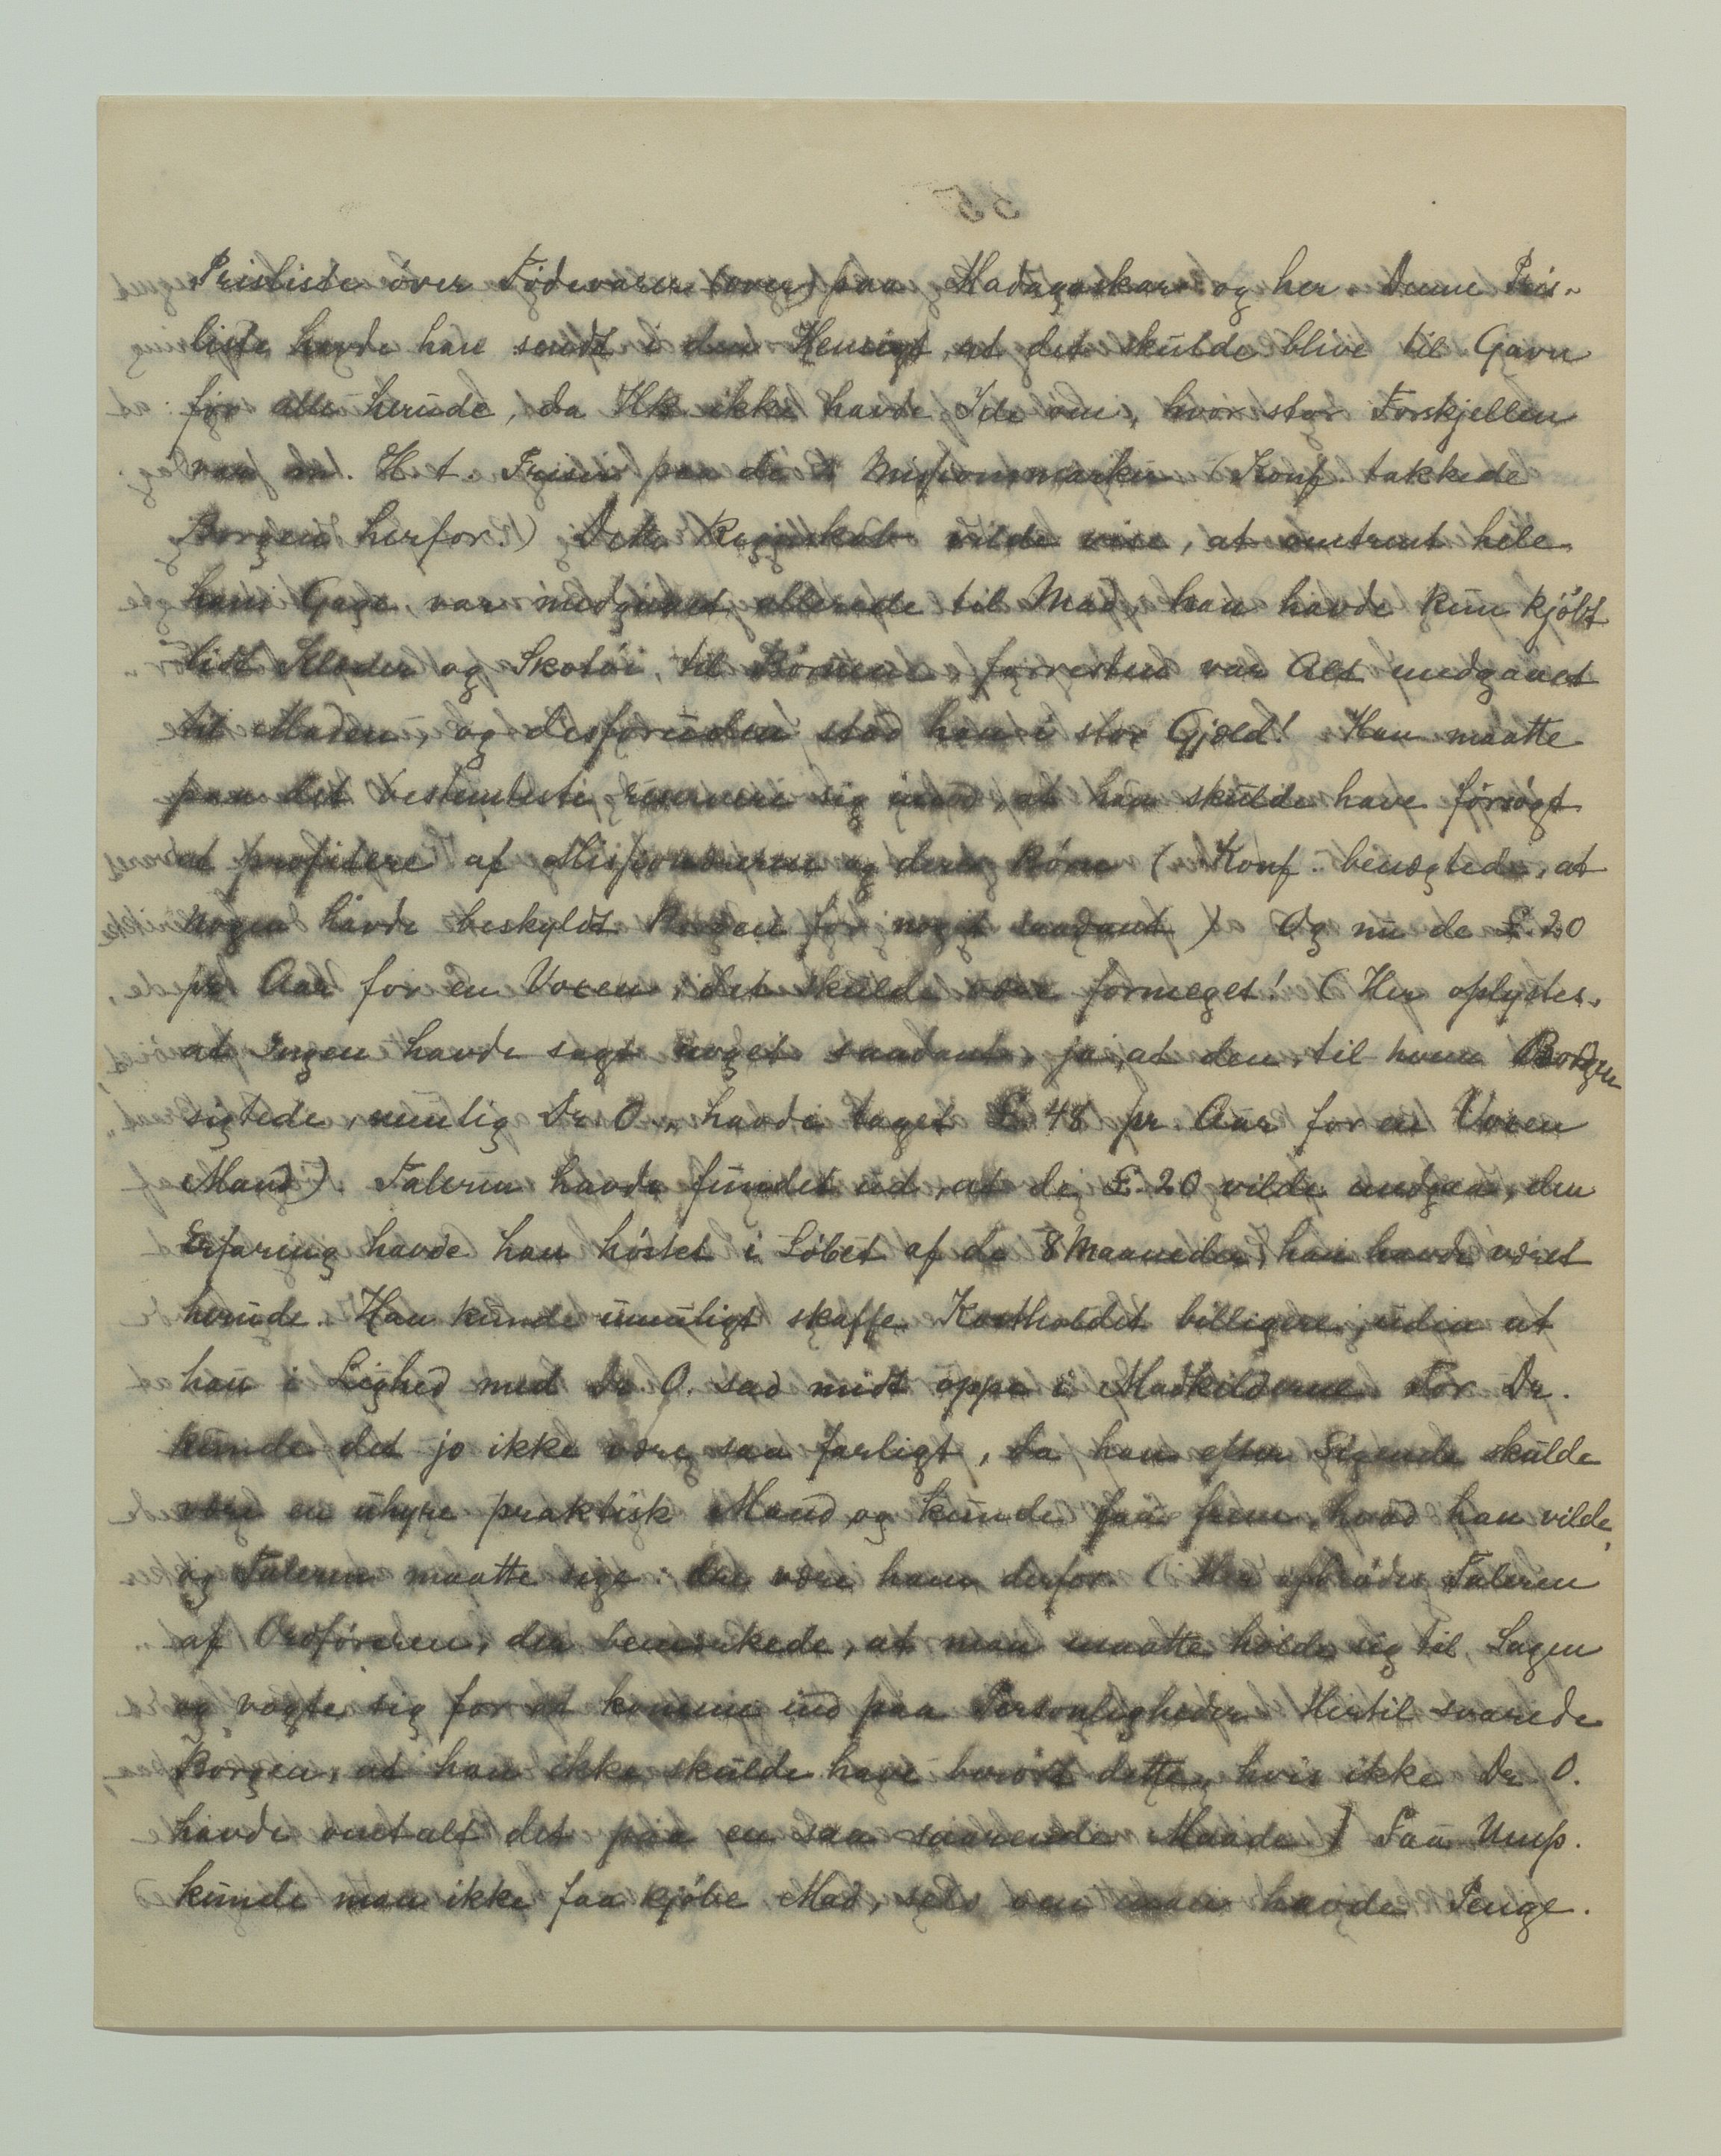 Prisliste over Födevarer (over) paa Madagaskar og her. Denne Pris-
liste havde han sendt i den Hensigt, at det skulde blive til Gavn
for alle herude, da Hk ikke havde Ide om, hvor stor Forskjellen
var m. H. t. Priser paa de 2 Missionsmarker (Konf. takkede
Borgen herfor.) Dette Regnskab vilde vise, at omtrent hele
hans Gage, var medgaaet allerede til Mad, han havde kun kjöbt
lidt Klæder og Skotöi, til Börnene, forresten var Alt medgaaet
til Maden, og desforuden stod han i stor Gjæld! Han maatte
paa det bestemteste reservere sig imod, at han skulde have forsögt
at profitere af Missionærerne og deres Börn (Konf. benægtede, at
Nogen havde beskyldt Borgen for noget saadant) Og nu de £ 20
pr Aar for en Voxen, det skulde være formeget! (Her oplystes,
at Ingen havde sagt noget saadant, ja, at den, til hvem Borgen
sigtede, nemlig Dr O., havde taget £ 48 pr. Aar for en Voxen
Mand) Taleren havde fundet ud, at de £ 20 vilde medgaa, den
Erfaring havde han höstet i Löbet af de 8 Maaneder, han havde været
herude. Han kunde umuligt skaffe Kostholdet billigere, uden at
han i Lighed med Dr. O. sad midt oppe i Madkilderne. For Dr.
kunde det jo ikke være saa farligt, da han efter Sigende skulde
være en uhyre praktisk Mand og kunde faa frem, hvad han vilde,
og Taleren maatte sige: Ære være ham derfor. (Her afbrödes Taleren
af Ordföreren, der bemærkede, at man maatte holde sig til Sagen
og vogte sig for at komme ind paa Personligheder. Hertil svarede
Borgen, at han ikke skulde have berört dette, hvis ikke Dr. O.
havde omtalt det paa en saa saarende Maade) Paa Ump.
kunde man ikke faa kjöbe Mad, selv om man havde Penge.